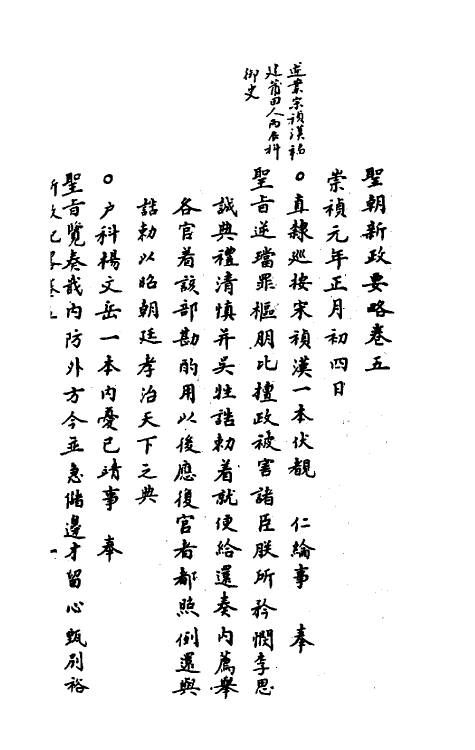 聖朝新政要略卷五
崇禎元年正月初四日
○直隸巡按宋禎漢一本伏覩 仁綸事 奉
聖旨逆璫罪樞朋比擅政被害諸臣朕所矜憫李思
誠典禮清慎并吳牲誥勅着就便給還奏內薦舉
各官着該部勘酌用以後應復官者都照例還與
誥勅以昭朝廷孝治天下之典
○戶科楊文岳一本內憂已靖事 奉
聖旨覽奏我內防外方今並急儲邊才留心甄別裕
業宗禎漢福
建莆田人丙辰科
御史
新政
一